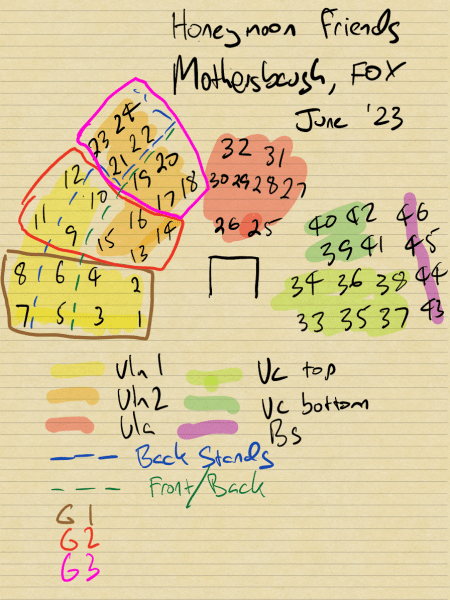 Honeymoon Friends
Mothersbaugh, FOX
June '23
24
23 22
21 20
19 18
17
12
10
11
9
16
14
15
13
8 6 4 2
7 5 3 1
32 31
30 29 28 27
26 25
40 42 46
39 41 45
34 36 38 44
33 35 37 43
Vln 1
Vc top
Vln 2
Vc bottom
Vla
Bs
Back Stands
Front/Back
G1
G2
G3